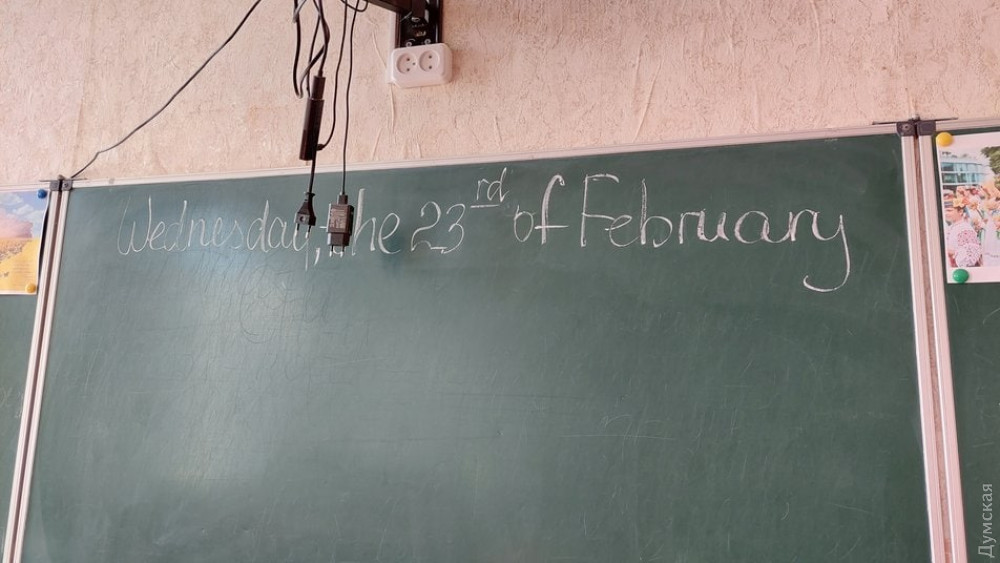 Wednesday, the 23rd of February
Думская